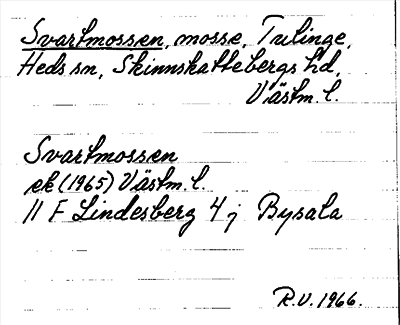 Svartmossen, mosse, Tulinge,
Heds sn, Skinnskattebergs hd,
Västm. l.
Svartmossen
ek (1965) Västm. l.
11 F Lindesberg 4 j Bysala
R.V. 1966.